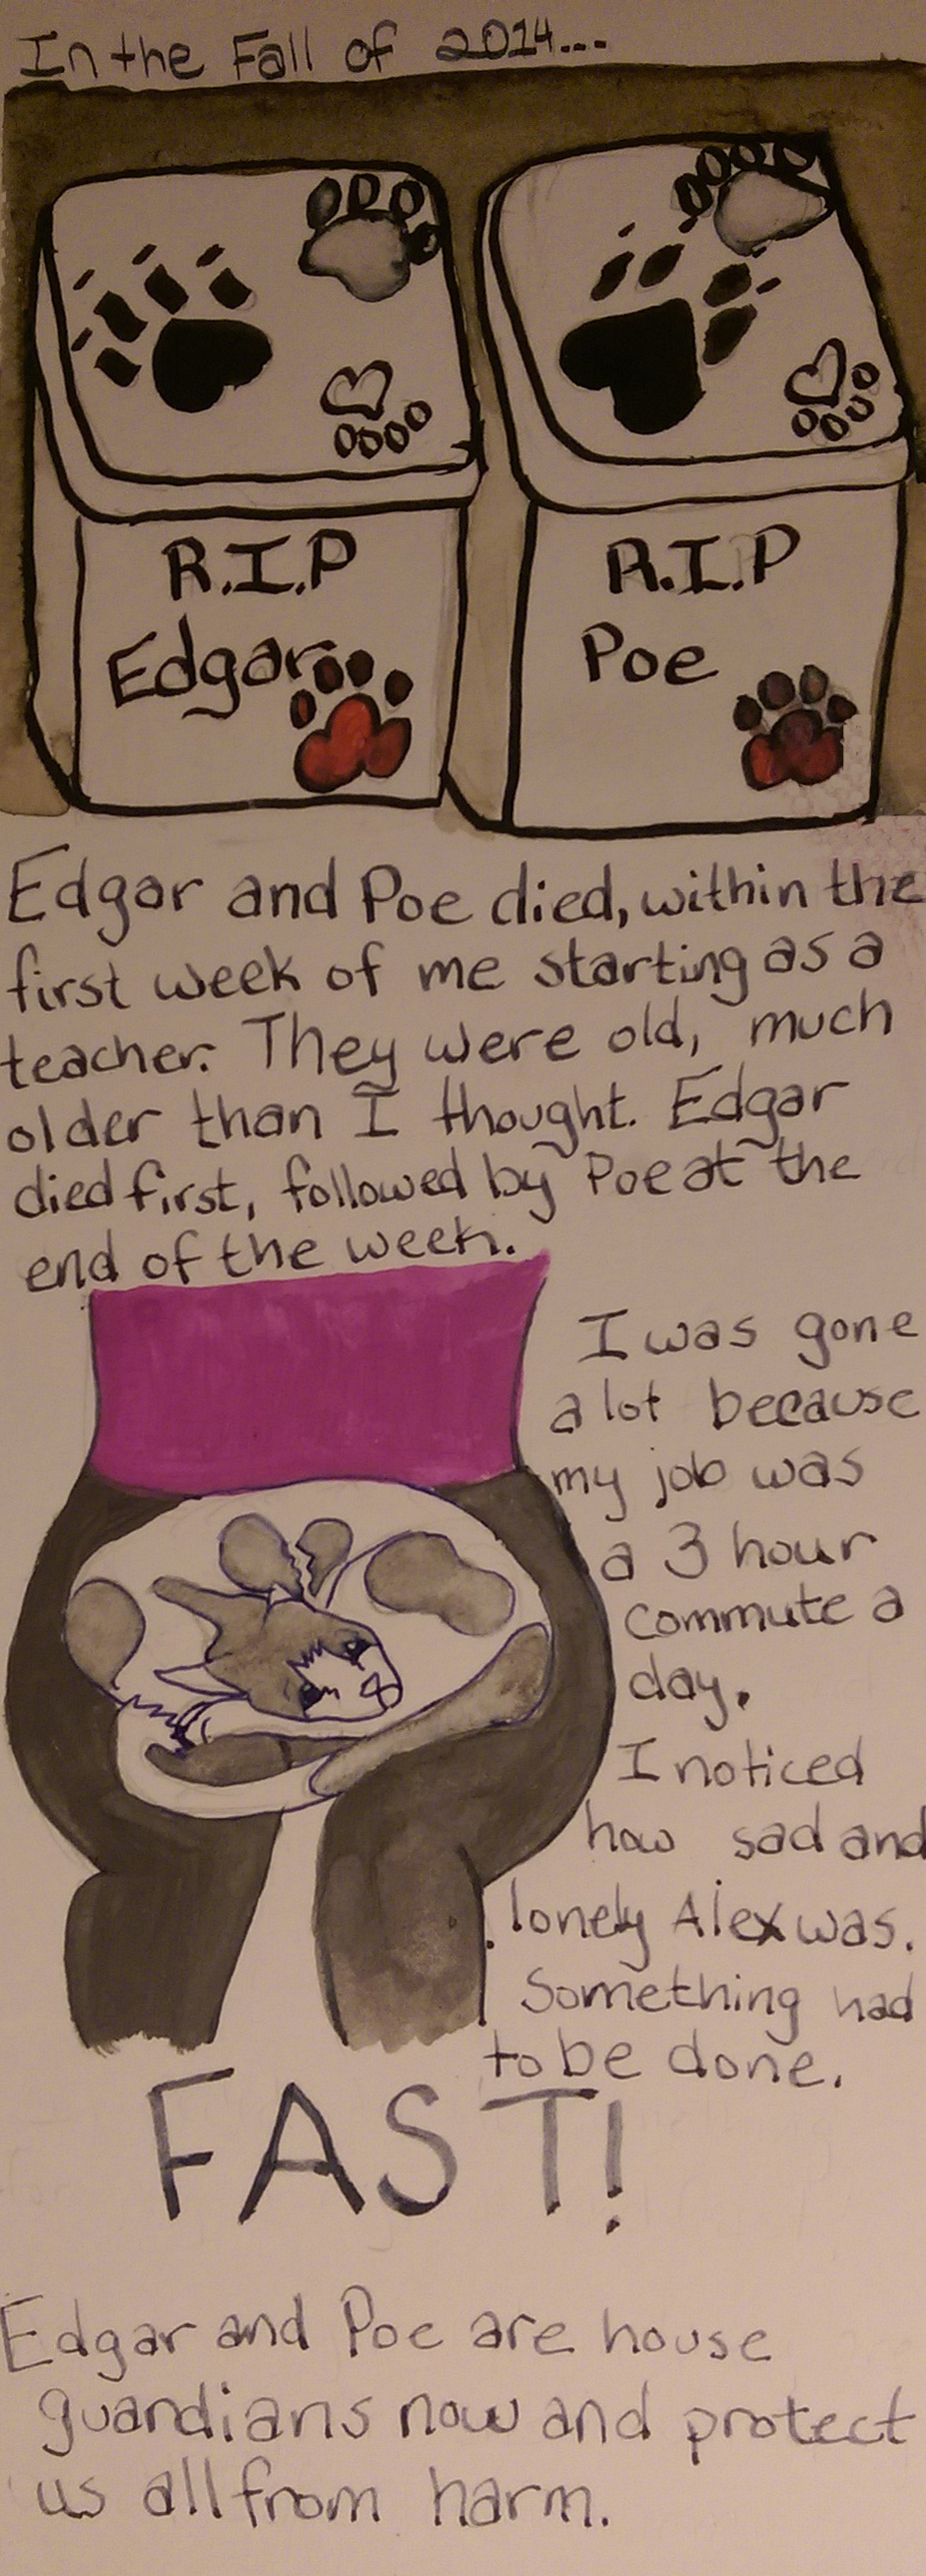 In the Fall of 2014...
R.I.P
Edgar
R.I.P
Poe
Edgar and Poe died, within the
first week of me starting as a
teacher. They were old, much
older than I thought. Edgar
died first, followed by Poe at the
end of the week.
I was gone
a lot because
my job was
a 3 hour
commute a
day.
I noticed
how sad and
lonely Alex was.
Something had
to be done.
FAST!
Edgar and Poe are house
guardians now and protect
us all from harm.